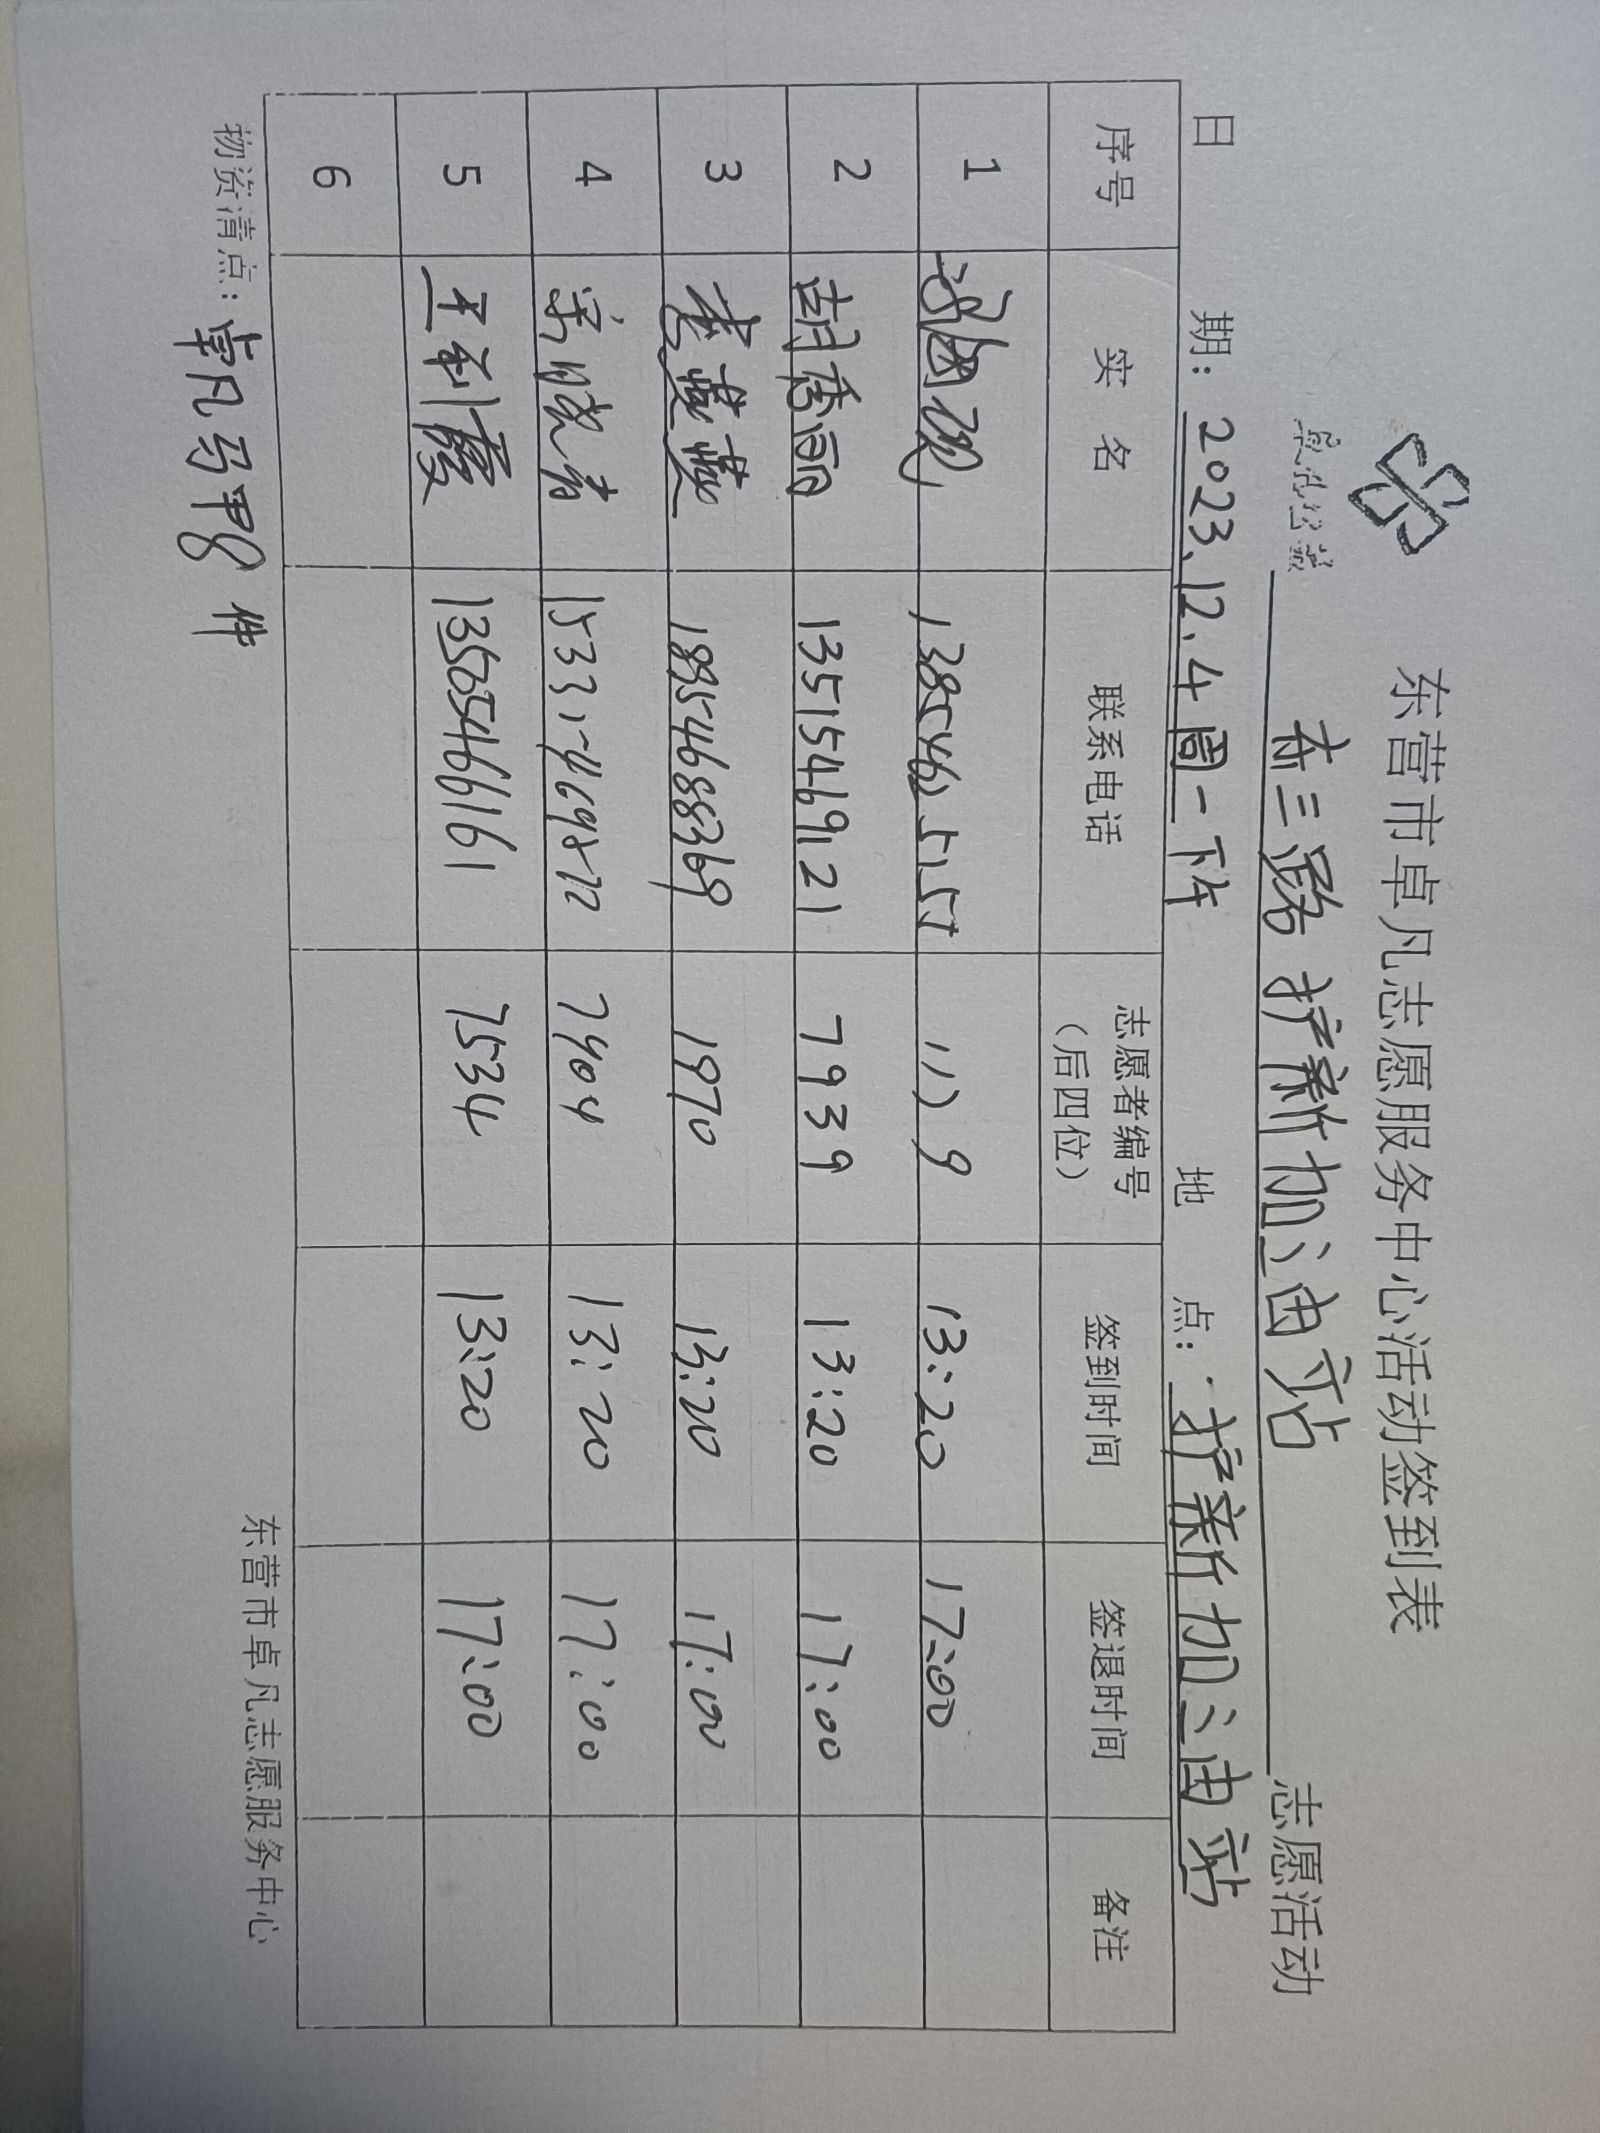 东营市卓凡志愿服务中心活动签到表
卓凡公益
东三路扩新加油站 志愿活动
日 期: 2023.12.4周一下午 地 点: 扩新加油站
序号 实 名 联系电话 志愿者编号(后四位) 签到时间 签退时间 备注
1 1119 13:20 17:00
2 胡秀丽 13515469121 7939 13:20 17:00
3 燕燕 18954688369 1970 13:20 17:00
4 宋晓春 7404 13:20 17:00
5 王利霞 13505466161 7534 13:20 17:00
6
物资清点: 卓凡马甲8件
东营市卓凡志愿服务中心